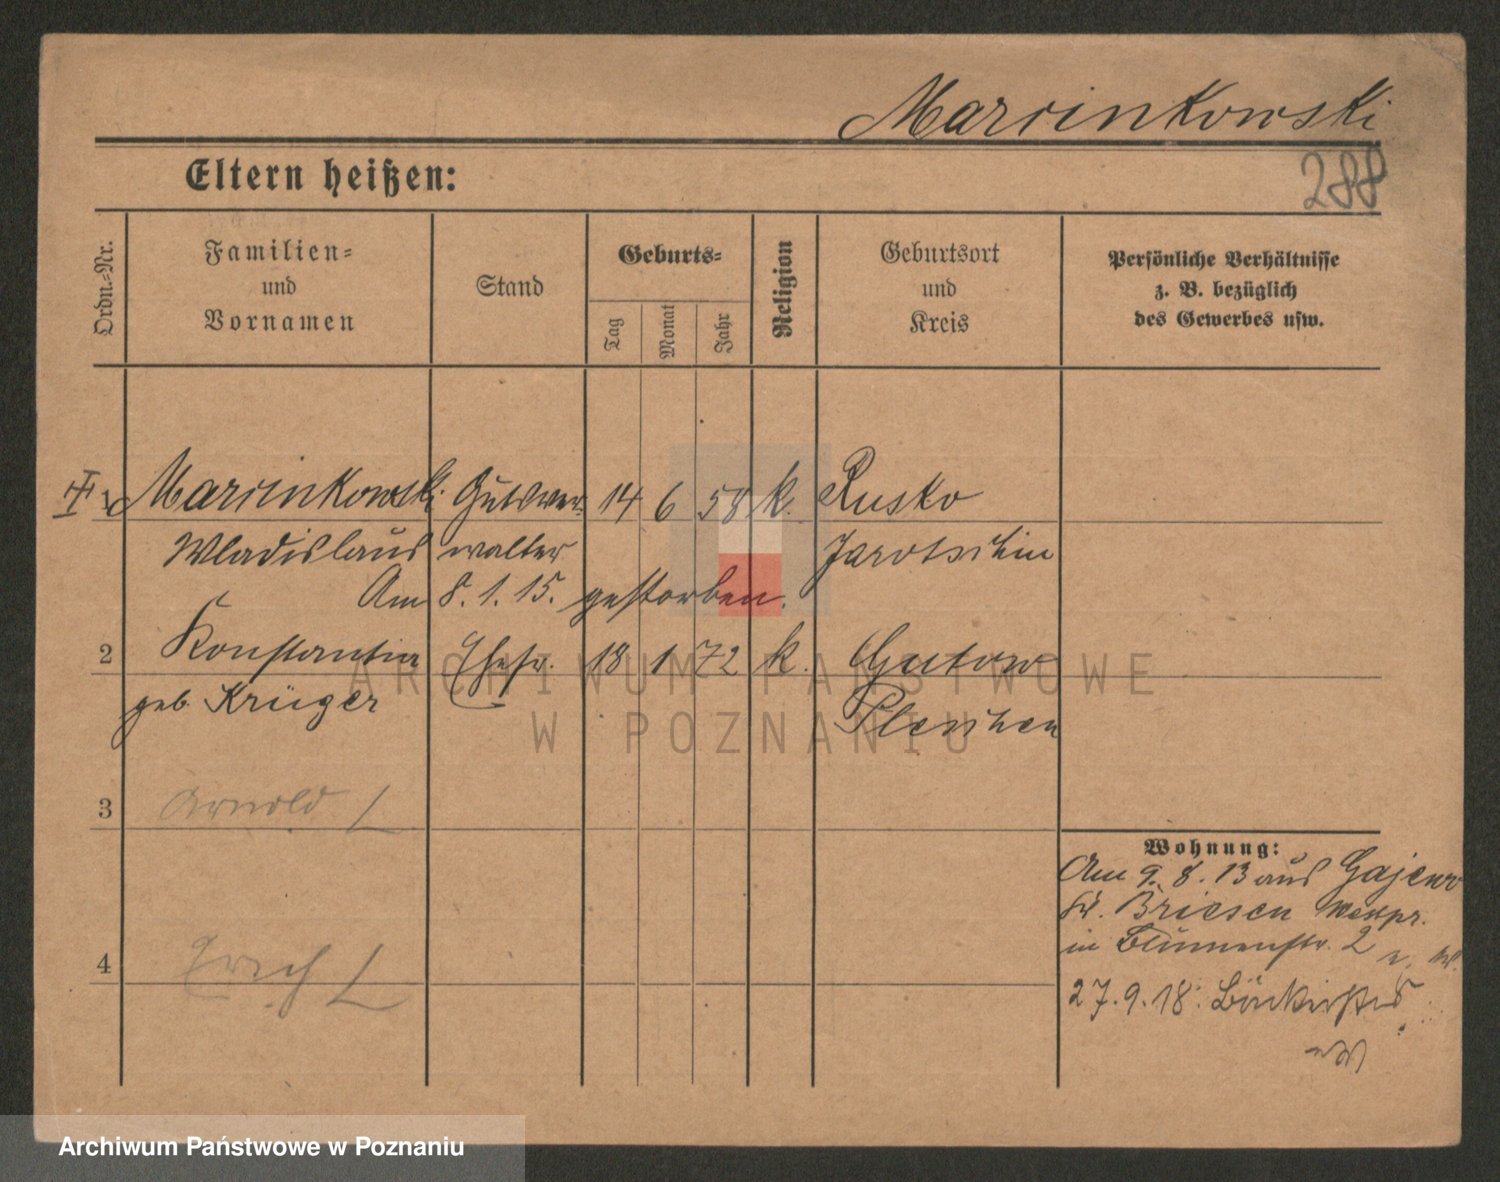 Marcinkowski
288
Eltern heißen:
Ordn.-Nr.
Familien-
und
Vornamen
Stand
Geburts-
Tag
Monat
Jahr
Religion
Geburtsort
und
Kreis
Persönliche Verhältnisse
z. B. bezüglich
des Gewerbes usw.
1 Marcinkowski Gutsver- 14 6 58 k. Rusko
Wladislaus walter Jarotschin
Am 8.1.15. gestorben.
2 Konstantia Ehefr. 18 1 72 k. Gutow
geb. Krüger Pleschen
3 Arnold
4 Erich
Wohnung:
Am 9.8.13 aus Gajewo
Kr. Briesen Westpr.
in Blumenstr. 2
27.9.18.
ARCHIWUM PAŃSTWOWE
W POZNANIU
Archiwum Państwowe w Poznaniu